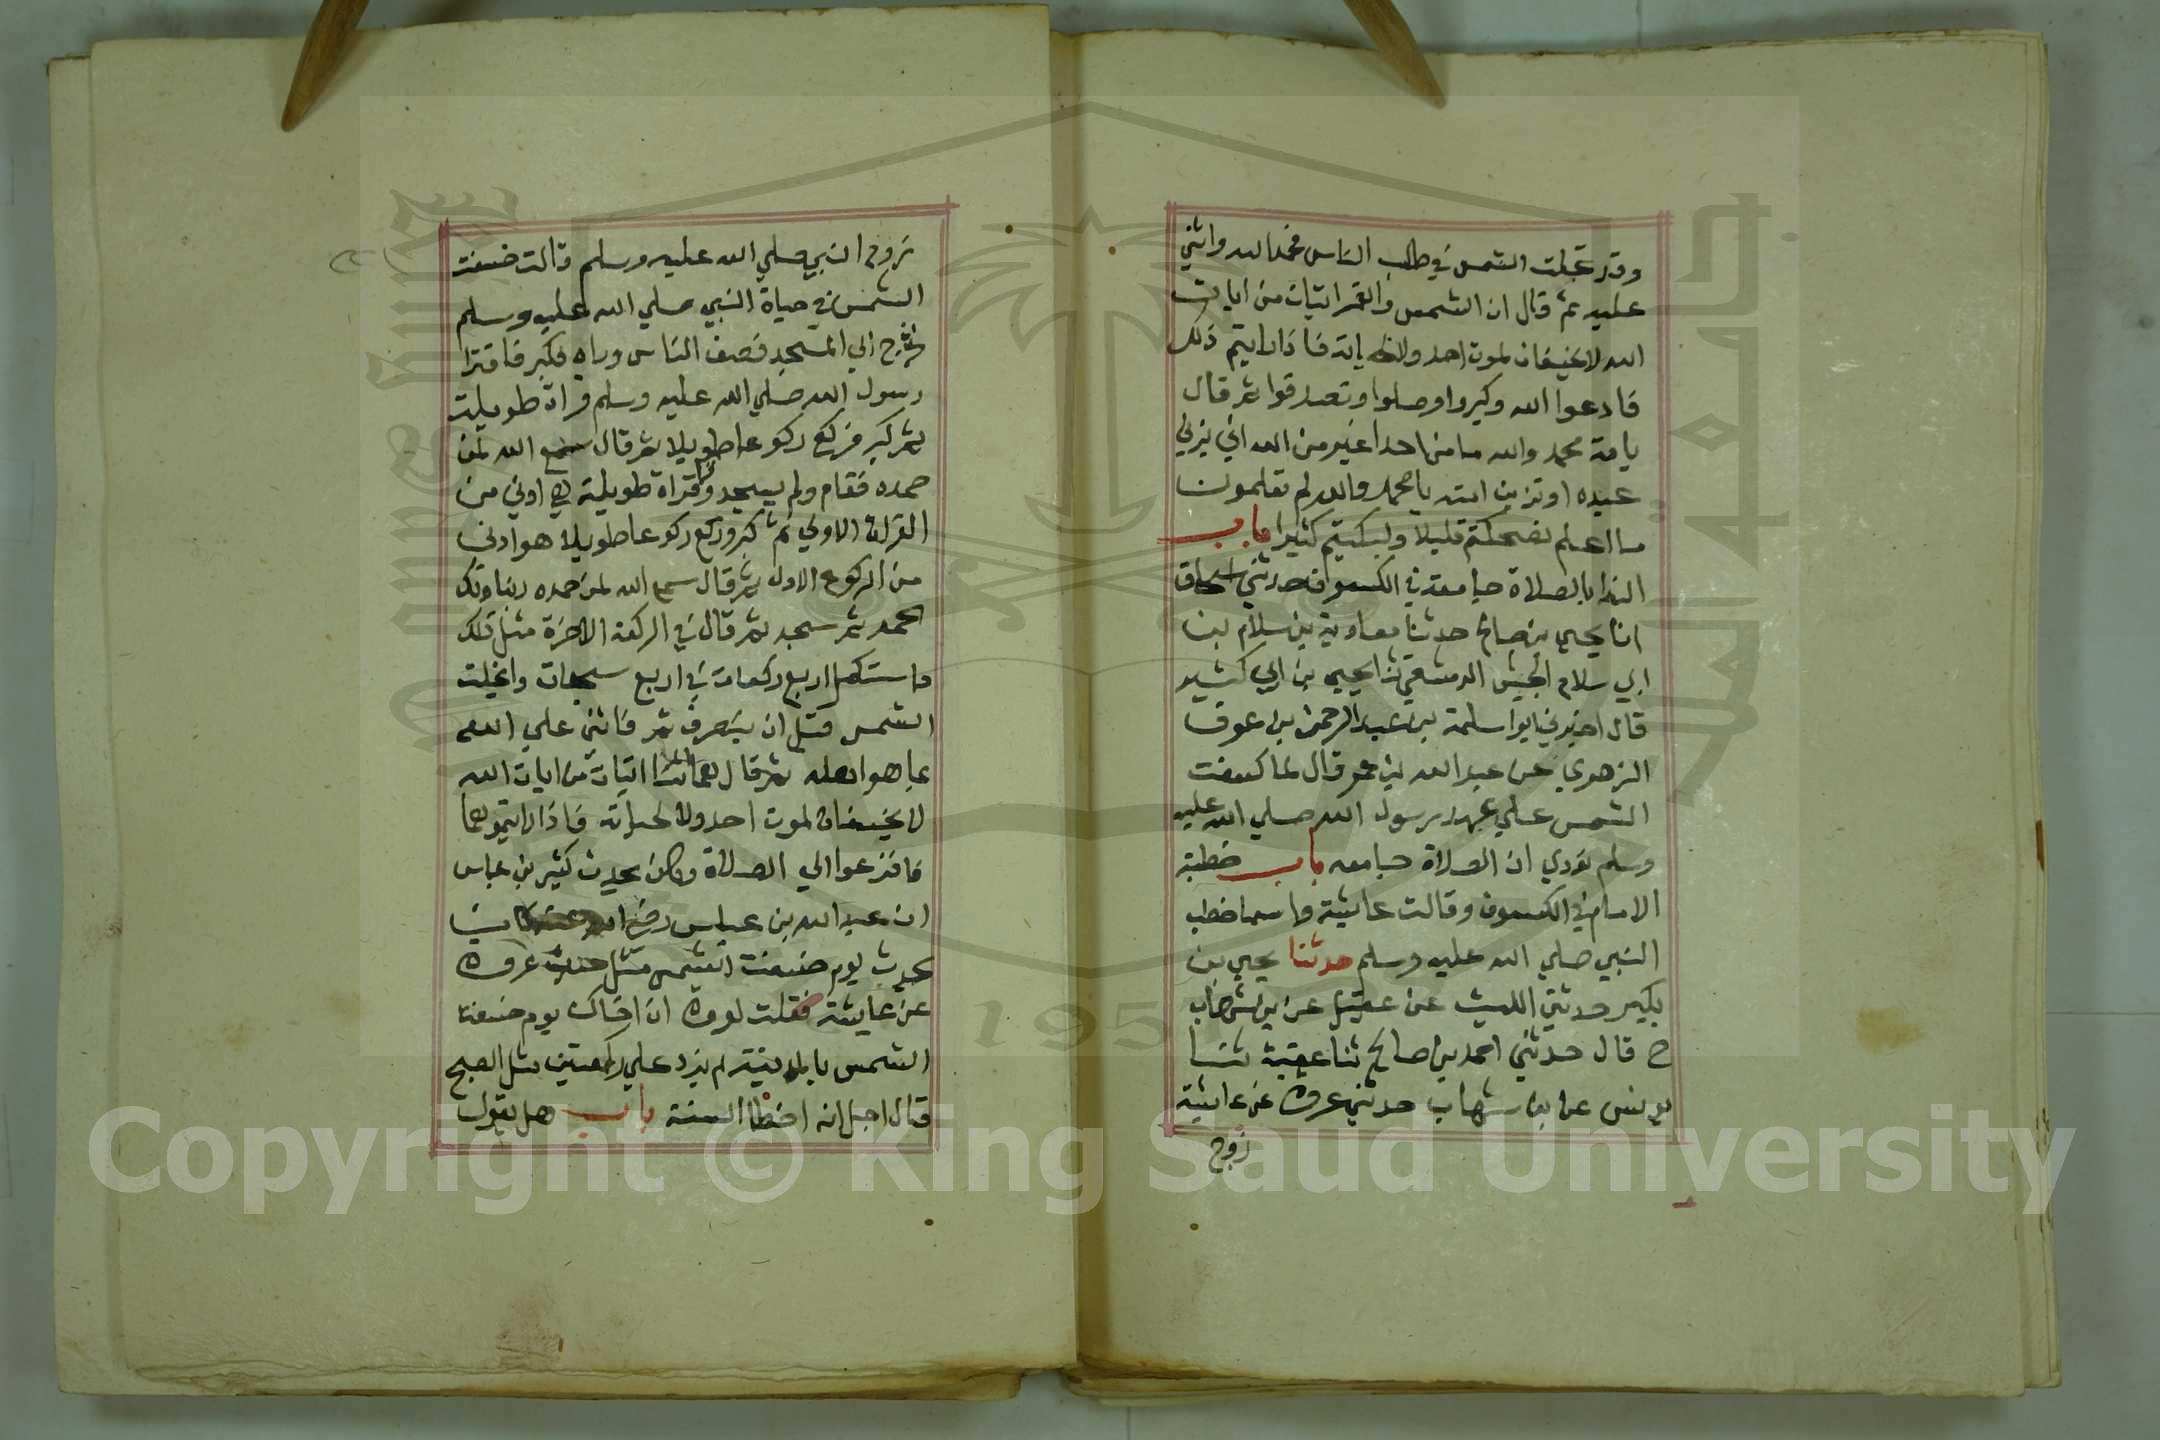 وقد تجلت الشمس فخطب الناس فحمد الله واثني
عليه ثم قال ان الشمس والقمر ايتان من ايات
الله لا يخسفان لموت احد ولا لحياته فاذا رايتم ذلك
فادعوا الله وكبروا وصلوا وتصدقوا ثم قال
يا امة محمد والله ما من احد اغير من الله ان يزني
عبده او تزني امته يا امة محمد والله لو تعلمون
ما اعلم لضحكتم قليلا ولبكيتم كثيرا باب
الندا بالصلاة جامعة في الكسوف حدثني اسحاق
انا يحيي بن صالح حدثنا معاوية بن سلام بن
ابي سلام الحبشي الدمشقي ثنا يحيي بن ابي كثير
قال اخبرني ابوا سلمة بن عبد الرحمن بن عوف
الزهري عن عبد الله بن عمرو قال لما كسفت
الشمس علي عهد رسول الله صلي الله عليه
وسلم نودي ان الصلاة جامعه باب خطبة
الامام في الكسوف وقالت عايشة واسما خطب
النبي صلي الله عليه وسلم حدثنا يحيي بن
بكير حدثني الليث عن عقيل عن ابن شهاب
ح قال حدثني احمد بن صالح ثنا عنبسة ثنا
يونس عن ابن شهاب حدثني عروة عن عايشة
زوج
زوج النبي صلي الله عليه وسلم قالت خسفت
الشمس في حياة النبي صلي الله عليه وسلم
فخرج الي المسجد فصف الناس وراه فكبر فاقترا
رسول الله صلي الله عليه وسلم قراة طويلة
ثم كبر فركع ركوعا طويلا ثم قال سمع الله لمن
حمده فقام ولم يسجد وقرا قراة طويلة هي ادني من
القراة الاولي ثم كبر وركع ركوعا طويلا هو ادني
من الركوع الاول ثم قال سمع الله لمن حمده ربنا ولك
الحمد ثم سجد ثم قال في الركعة الاخرة مثل ذلك
فاستكمل اربع ركعات في اربع سجدات وانجلت
الشمس قبل ان ينصرف ثم قام فاثني علي الله
بما هو اهله ثم قال هما ايتان من ايات الله
لا يخسفان لموت احد ولا لحياته فاذا رايتموهما
فافزعوا الي الصلاة وكان يحدث كثير بن عباس
ان عبد الله بن عباس رضي الله عنهما كان
يحدث يوم خسفت الشمس مثل حديث عروة
عن عايشة فقلت لعروة ان اخاك يوم خسفت
الشمس بالمدينة لم يزد علي ركعتين مثل الصبح
قال اجل انه اخطا السنة باب هل يقول
Copyright © King Saud University
1957